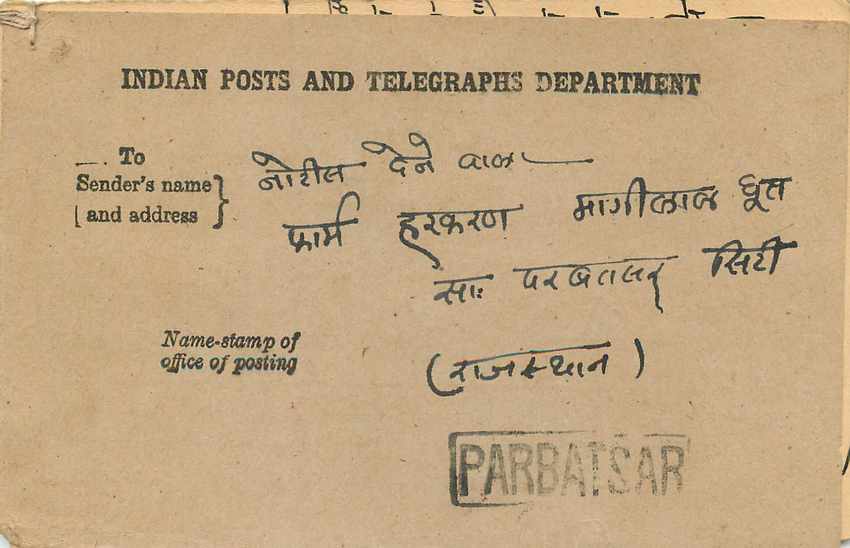 INDIAN POSTS AND TELEGRAPHS DEPARTMENT
To
Sender's name
and address
नोटीस देने वाला
फार्म हरकरण मागीलाल धूत
साः परबतसर सिटी
(राजस्थान)
Name-stamp of
office of posting
PARBATSAR